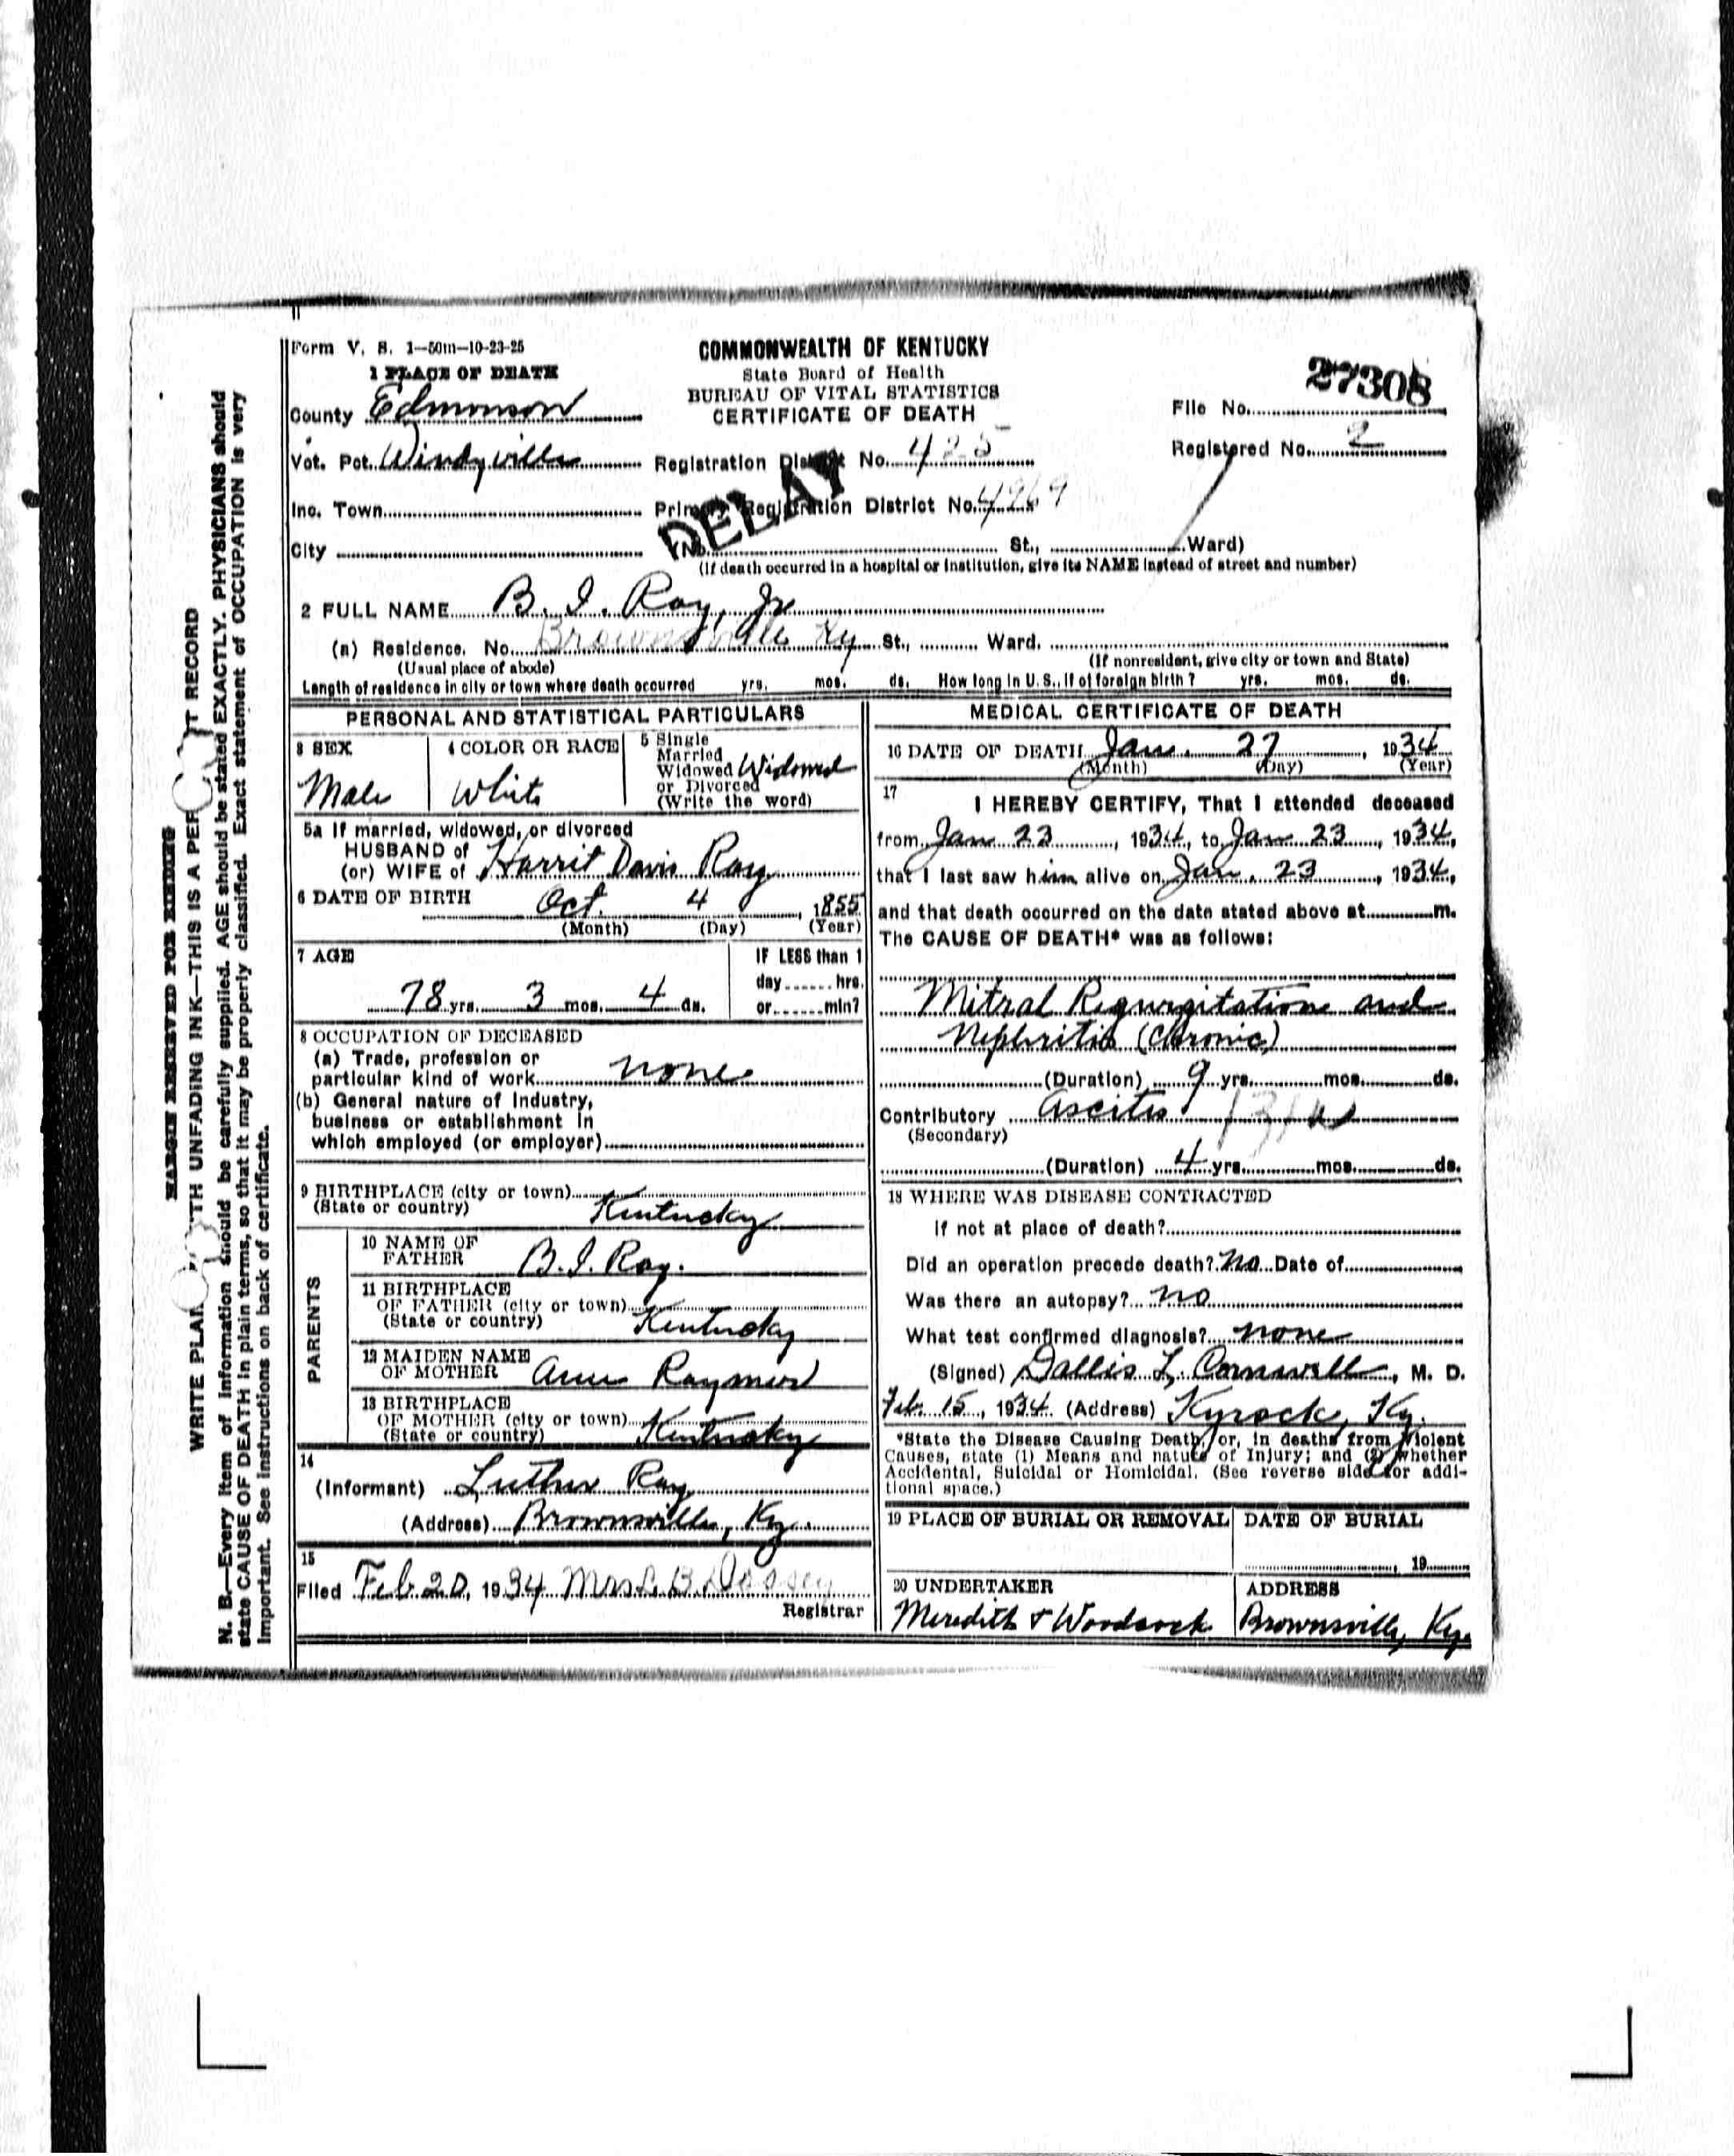 Form V. S. 1—50m—10-23-25
COMMONWEALTH OF KENTUCKY
State Board of Health
BUREAU OF VITAL STATISTICS
CERTIFICATE OF DEATH
27308
File No.
Registered No. 2
1 PLACE OF DEATH
County Edmonson
Vot. Pct. Windyville
Registration District No. 425
Inc. Town
Primary Registration District No. 4269
DELAY
City
(No. St., Ward)
(If death occurred in a hospital or institution, give its NAME instead of street and number)
2 FULL NAME B. I. Ray, Jr
(a) Residence. No. Brownsville Ky St., Ward.
(Usual place of abode)
(If nonresident, give city or town and State)
Length of residence in city or town where death occurred yrs. mos. ds. How long in U. S., if of foreign birth? yrs. mos. ds.
PERSONAL AND STATISTICAL PARTICULARS
3 SEX
Male
4 COLOR OR RACE
White
5 Single
Married
Widowed Widowed
or Divorced
(Write the word)
5a If married, widowed, or divorced
HUSBAND of
(or) WIFE of Harrit Davis Ray
6 DATE OF BIRTH Oct. 4, 1855
(Month) (Day) (Year)
7 AGE
78 yrs. 3 mos. 4 ds.
IF LESS than 1
day hrs.
or min?
8 OCCUPATION OF DECEASED
(a) Trade, profession or
particular kind of work none
(b) General nature of Industry,
business or establishment in
which employed (or employer)
9 BIRTHPLACE (city or town)
(State or country) Kentucky
PARENTS
10 NAME OF
FATHER B. I. Ray.
11 BIRTHPLACE
OF FATHER (city or town)
(State or country) Kentucky
12 MAIDEN NAME
OF MOTHER Ann Raymer
13 BIRTHPLACE
OF MOTHER (city or town)
(State or country) Kentucky
14
(Informant) Luther Ray
(Address) Brownsville, Ky.
15
Filed Feb 20, 1934 Mrs. L. B. Dossey
Registrar
MEDICAL CERTIFICATE OF DEATH
16 DATE OF DEATH Jan. 27, 1934
(Month) (Day) (Year)
17
I HEREBY CERTIFY, That I attended deceased
from Jan 23, 1934, to Jan 23, 1934,
that I last saw him alive on Jan. 23, 1934,
and that death occurred on the date stated above at m.
The CAUSE OF DEATH* was as follows:
Mitral Regurgitation and
Nephritis (Chronic)
(Duration) 9 yrs. mos. ds.
Contributory ascites
(Secondary)
(Duration) 4 yrs. mos. ds.
18 WHERE WAS DISEASE CONTRACTED
If not at place of death?
Did an operation precede death? no Date of
Was there an autopsy? no
What test confirmed diagnosis? none
(Signed) Dallis L. Cornwell, M. D.
Feb. 15, 1934. (Address) Kyrock, Ky.
*State the Disease Causing Death, or, in deaths from Violent
Causes, state (1) Means and nature of Injury; and (2) whether
Accidental, Suicidal or Homicidal. (See reverse side for addi-
tional space.)
19 PLACE OF BURIAL OR REMOVAL
DATE OF BURIAL
, 19
20 UNDERTAKER
Meredith & Woodcock
ADDRESS
Brownsville, Ky.
MARGIN RESERVED FOR BINDING
WRITE PLAINLY WITH UNFADING INK—THIS IS A PERMANENT RECORD
N. B.—Every item of information should be carefully supplied. AGE should be stated EXACTLY. PHYSICIANS should
state CAUSE OF DEATH in plain terms, so that it may be properly classified. Exact statement of OCCUPATION is very
important. See instructions on back of certificate.